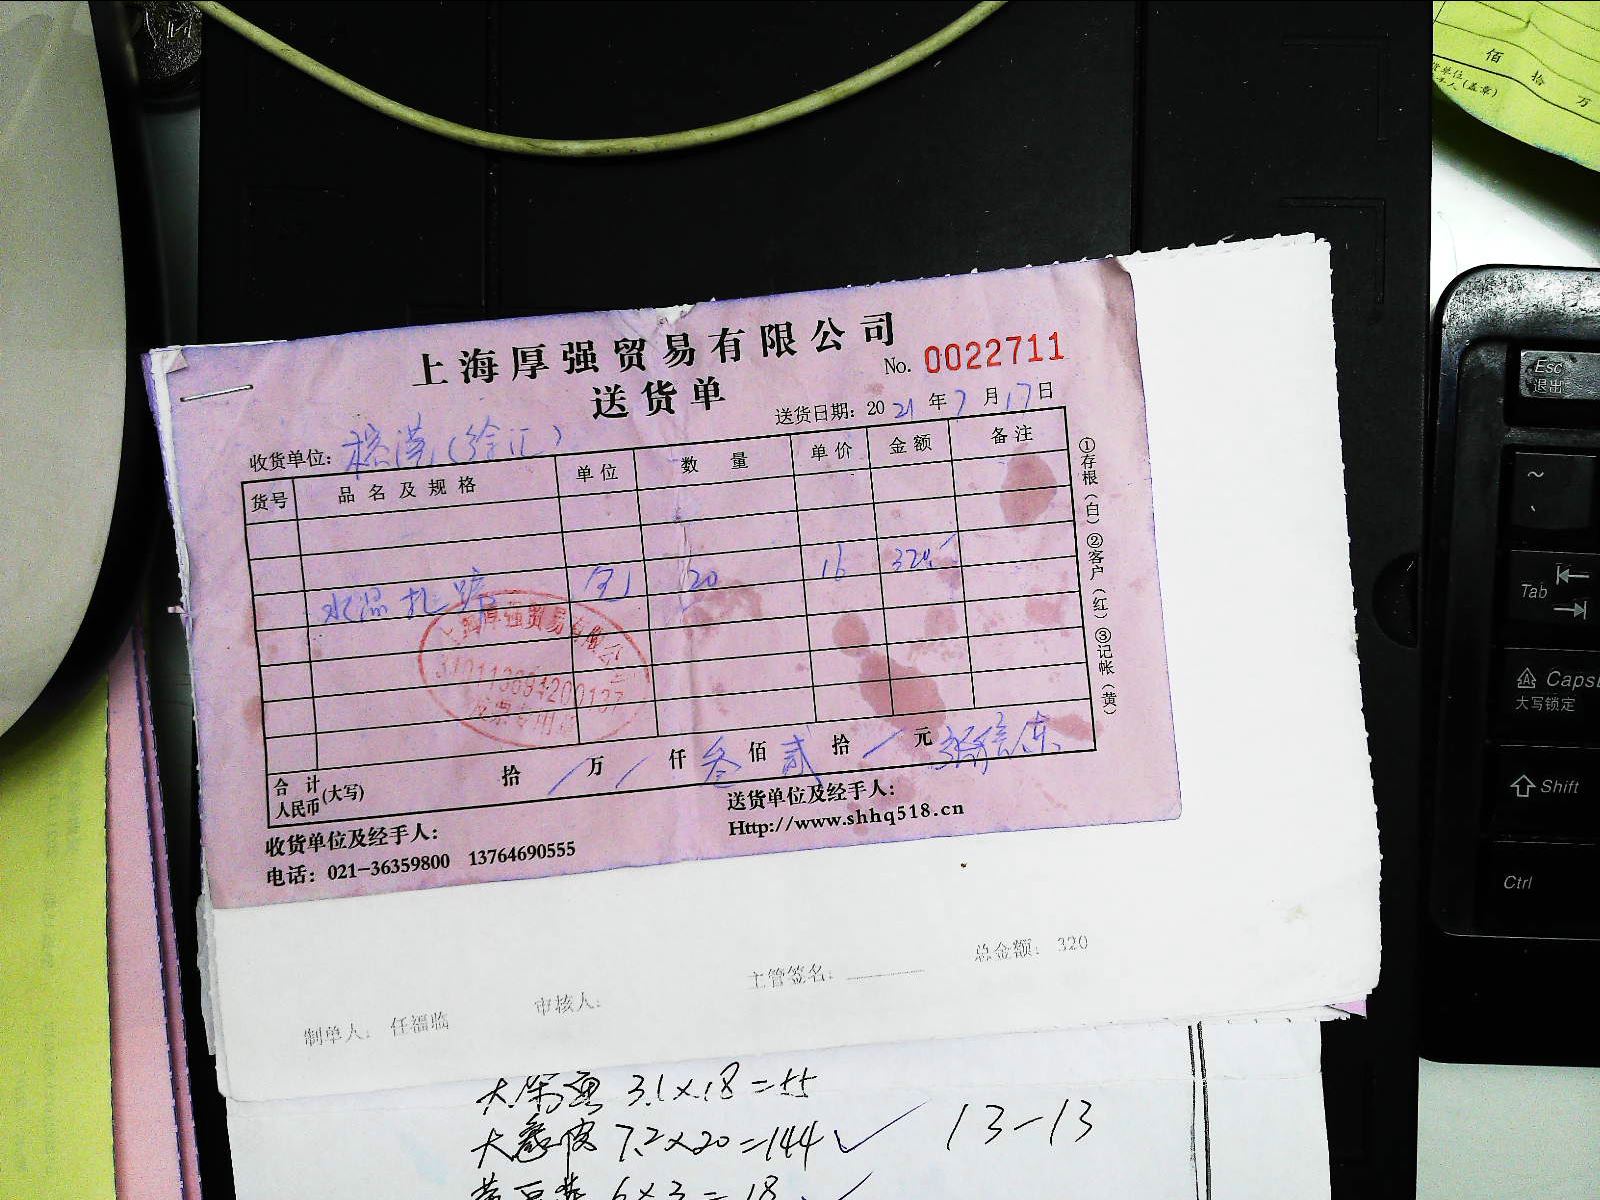 上海厚强贸易有限公司
送货单
No. 0022711
送货日期: 2021年7月17日
收货单位: (徐汇)
货号 品名及规格 单位 数量 单价 金额 备注
水温扎蹄 包 20 16 320
上海厚强贸易有限公司
310113694200137
发票专用章
合计人民币(大写) 拾 / 万 / 仟 叁 佰 贰 拾 / 元
收货单位及经手人:
送货单位及经手人:
电话: 021-36359800 13764690555
Http://www.shhq518.cn
①存根(白) ②客户(红) ③记帐(黄)
总金额: 320
主管签名:
审核人:
制单人: 任福临
3.1×18=55
7.2×20=144 ✓
13-13
6×3=18 ✓
佰 拾 万
(盖章)
Esc
退出
~
Tab
Caps
大写锁定
Shift
Ctrl